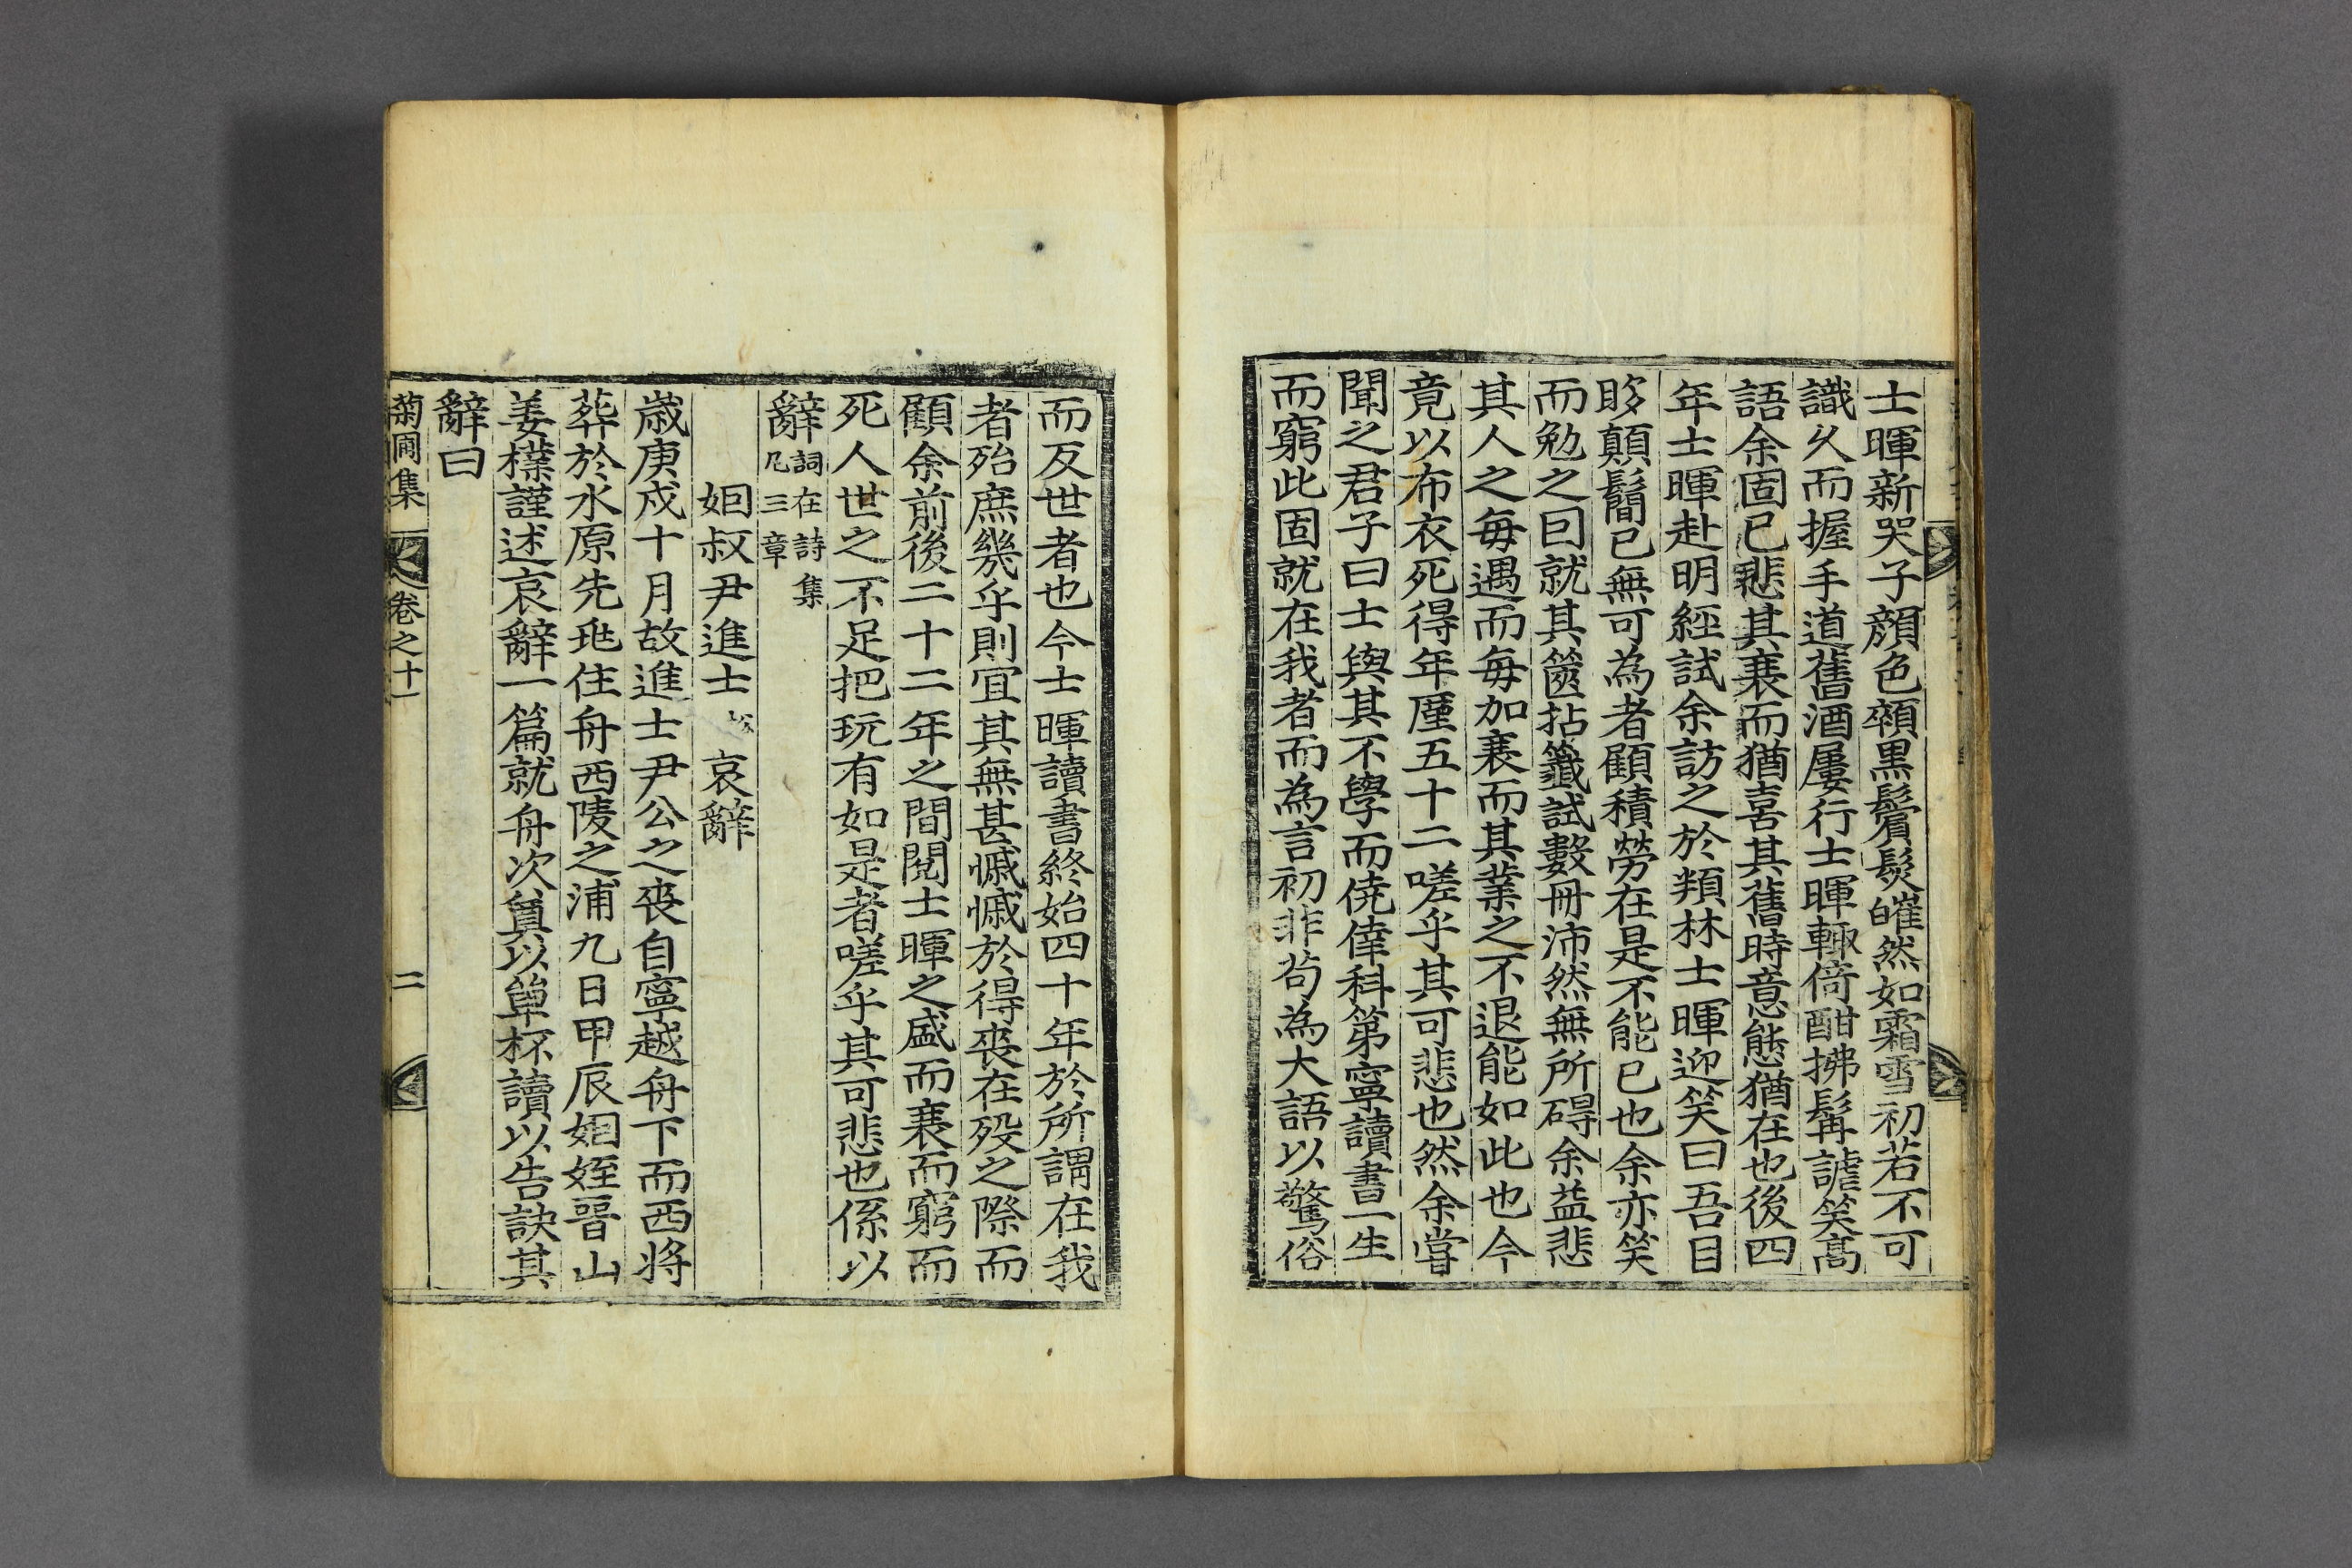 士暉新哭子顔色顇黒鬢髮皠然如霜雪初若不可
識久而握手道舊酒屢行士暉輙倚酣拂髯謔笑高
語余固已悲其衰而猶喜其舊時意態猶在也後四
年士暉赴明經試余訪之於類林士暉迎笑曰吾目
眵顛鬜已無可為者顧積勞在是不能已也余亦笑
而勉之曰就其篋拈籤試數冊沛然無所碍余益悲
其人之每遇而每加衰而其業之不退能如此也今
竟以布衣死得年厪五十二嗟乎其可悲也然余嘗
聞之君子曰士與其不學而僥倖科第寧讀書一生
而窮此固就在我者而為言初非苟為大語以驚俗
而反世者也今士暉讀書終始四十年於所謂在我
者殆庶幾乎則冝其無甚慽慽於得喪在殁之際而
顧余前後二十二年之間閱士暉之盛而衰而窮而
死人世之不足把玩有如是者嗟乎其可悲也係以
辭詞在詩集
凡三章
姻叔尹進士 哀辭
歲庚戍十月故進士尹公之喪自寧越舟下而西將
葬於水原先兆住舟西陵之浦九日甲辰姻姪晉山
姜檏謹述哀辭一篇就舟次奠以單杯讀以告訣其
辭曰
菊圃集 卷之十一 二